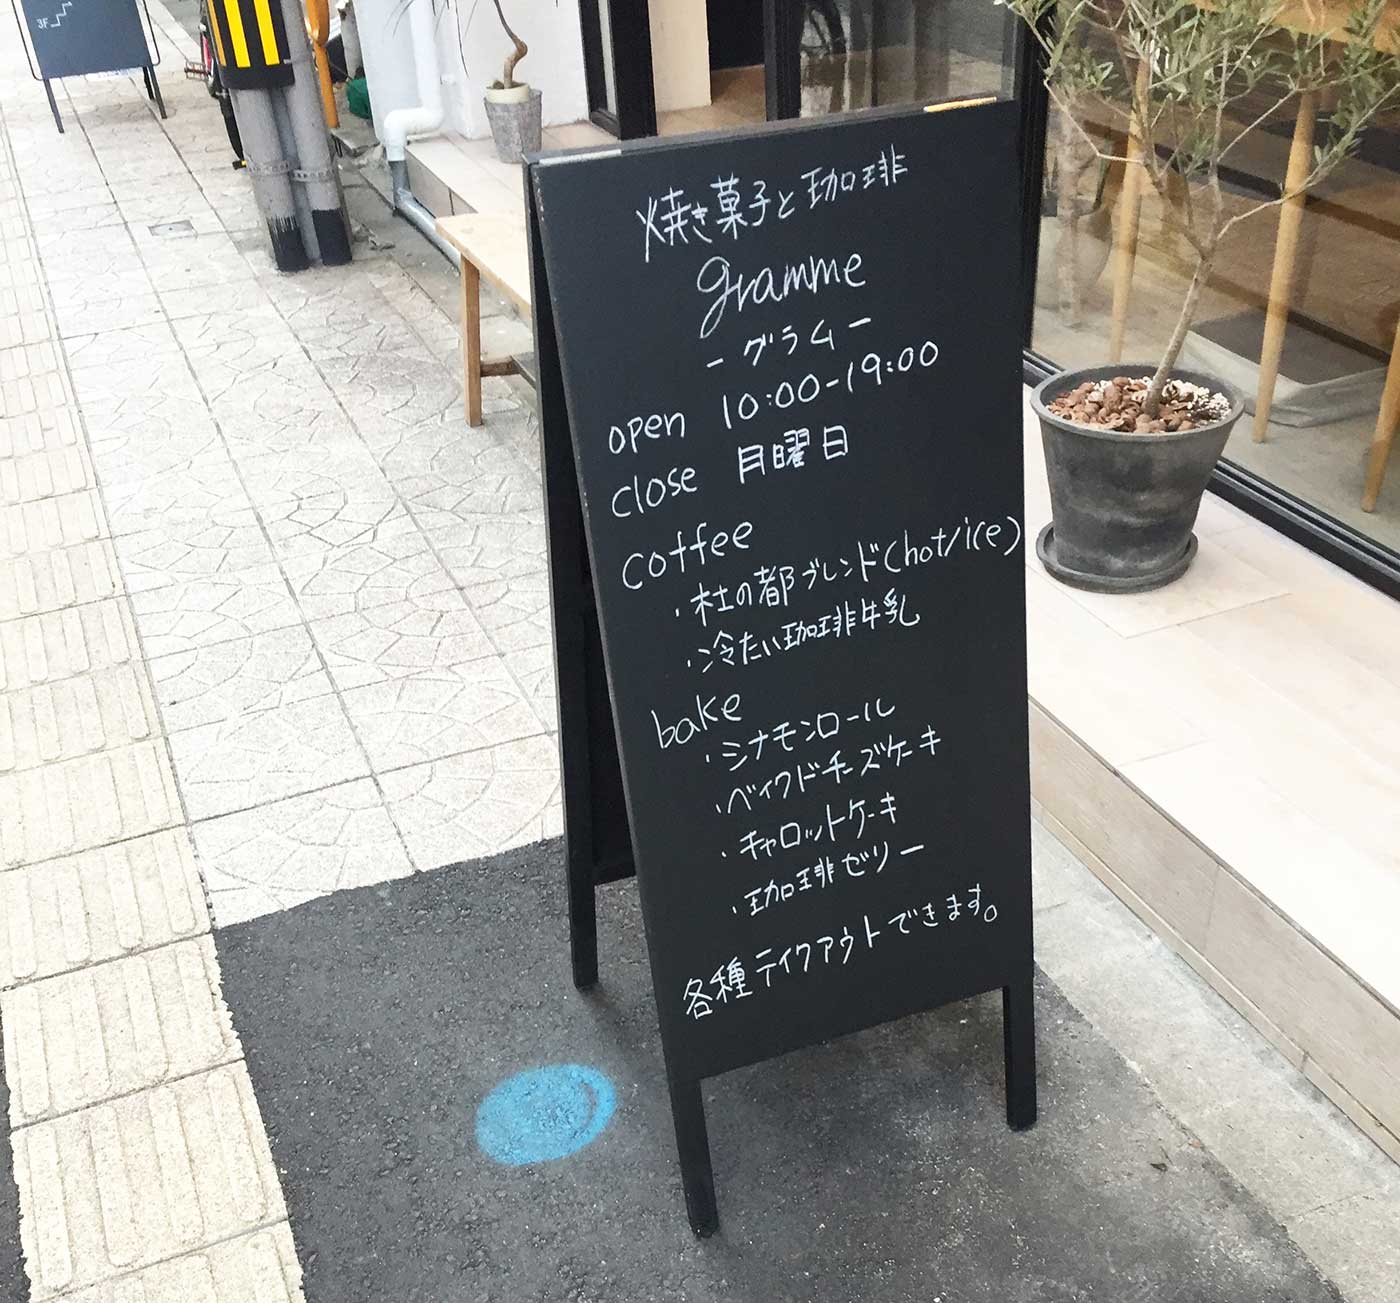 3F
焼き菓子と珈琲
gramme
－グラム－
open 10:00-19:00
close 月曜日
coffee
・杜の都ブレンド(hot/ice)
・冷たい珈琲牛乳
bake
・シナモンロール
・ベイクドチーズケーキ
・キャロットケーキ
・珈琲ゼリー
各種テイクアウトできます。